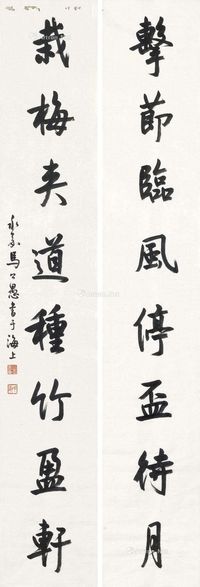 擊節臨風停盃待月
栽梅夹道種竹盈軒
永嘉馬公愚書于海上